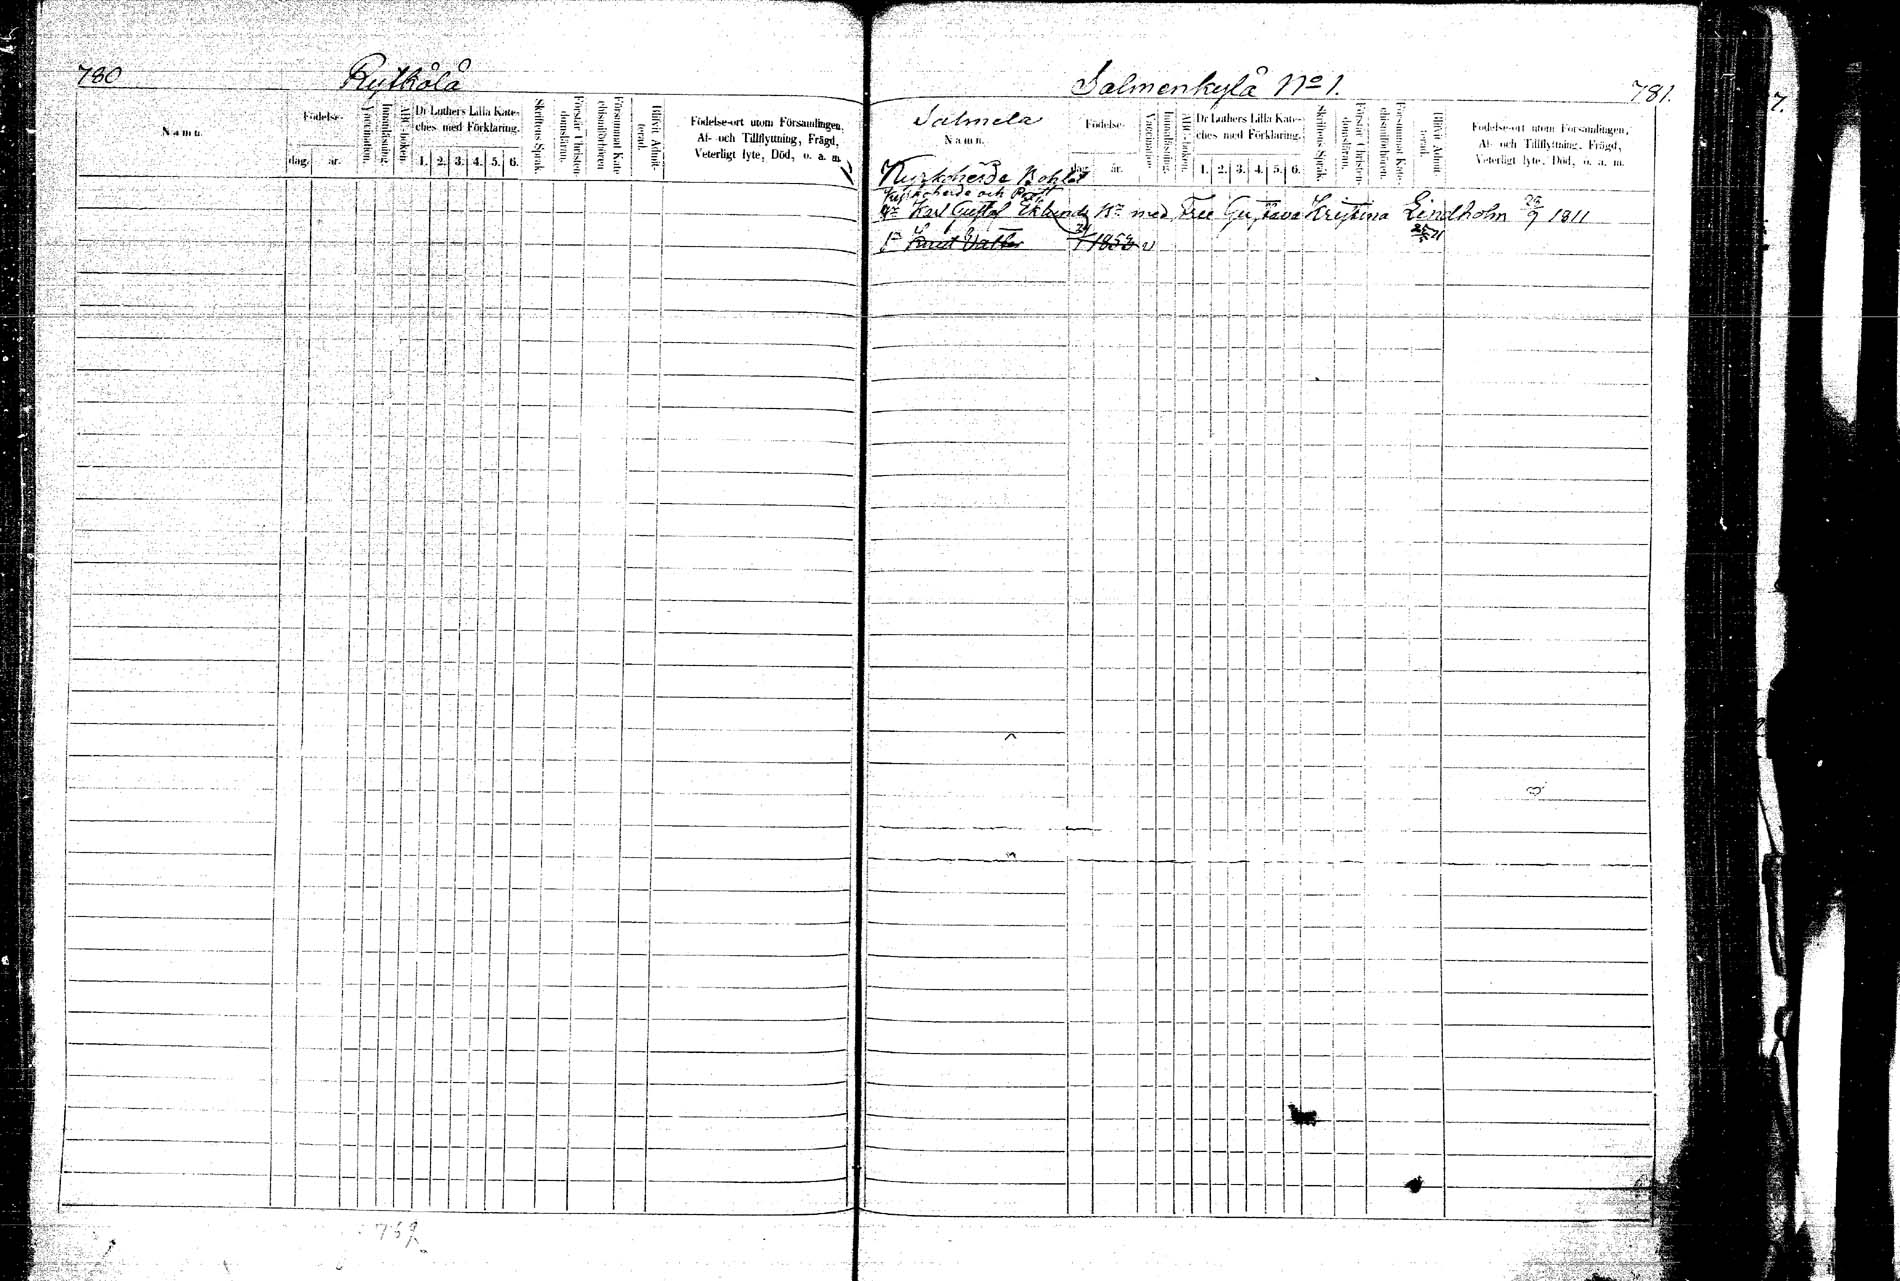 780
Rytkölä
Namn.
Födelse-
dag.
år.
Vaccination.
Innanläsning
ABC-boken.
Dr Luthers Lilla Kate-
ches med Förklaring.
1. 2. 3. 4. 5. 6.
Skriftens Språk
Förstår Christen-
domsläran.
Försummat Kate
chismiförhören
Blifvit Admit-
terad.
Födelse-ort utom Församlingen,
Af- och Tillflyttning, Frägd,
Veterligt lyte, Död, o. a. m.
Salmenkylä No 1.
781.
Salmela
Namn.
Födelse-
dag.
år.
Vaccination
Innanläsning.
ABC-boken.
Dr Luthers Lilla Kate-
ches med Förklaring.
1. 2. 3. 4. 5. 6.
Skriftens Språk
Förstår Christen-
domsläran.
Försummat Kate-
chismiförhören.
Blifvit Admit
terad.
Födelse-ort utom Församlingen,
Af- och Tillflyttning, Frägd,
Veterligt lyte, Död, o. a. m.
Kyrkoherde
Kyrkoherde och
Karl Gustaf Eklund med Gustava Kristina Lindholm 1811
Knut 1852 v
7.